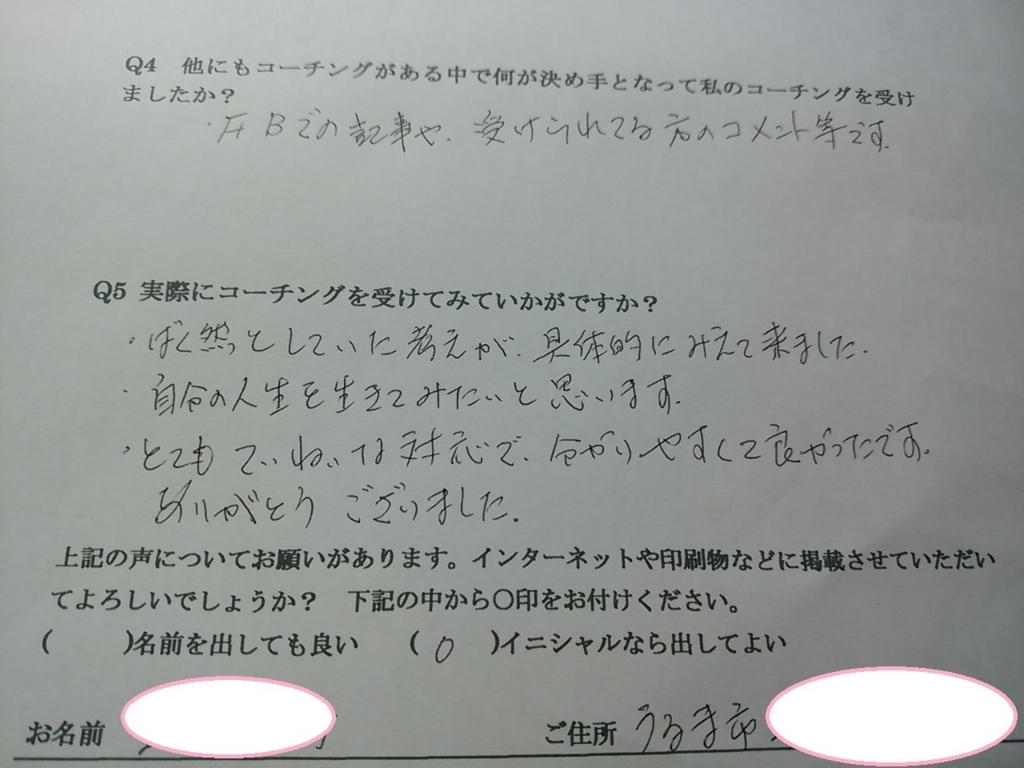 Q4 他にもコーチングがある中で何が決め手となって私のコーチングを受け
ましたか？
・FBでの記事や、受けられてる方のコメント等です。
Q5 実際にコーチングを受けてみていかがですか？
・ばく然っとしていた考えが、具体的にみえて来ました。
・自分の人生を生きてみたいと思います。
・とてもていねいな対応で、分かりやすくて良かったです。
ありがとうございました。
上記の声についてお願いがあります。インターネットや印刷物などに掲載させていただい
てよろしいでしょうか？ 下記の中から〇印をお付けください。
( )名前を出しても良い (0)イニシャルなら出してよい
お名前 ご住所 うるま市